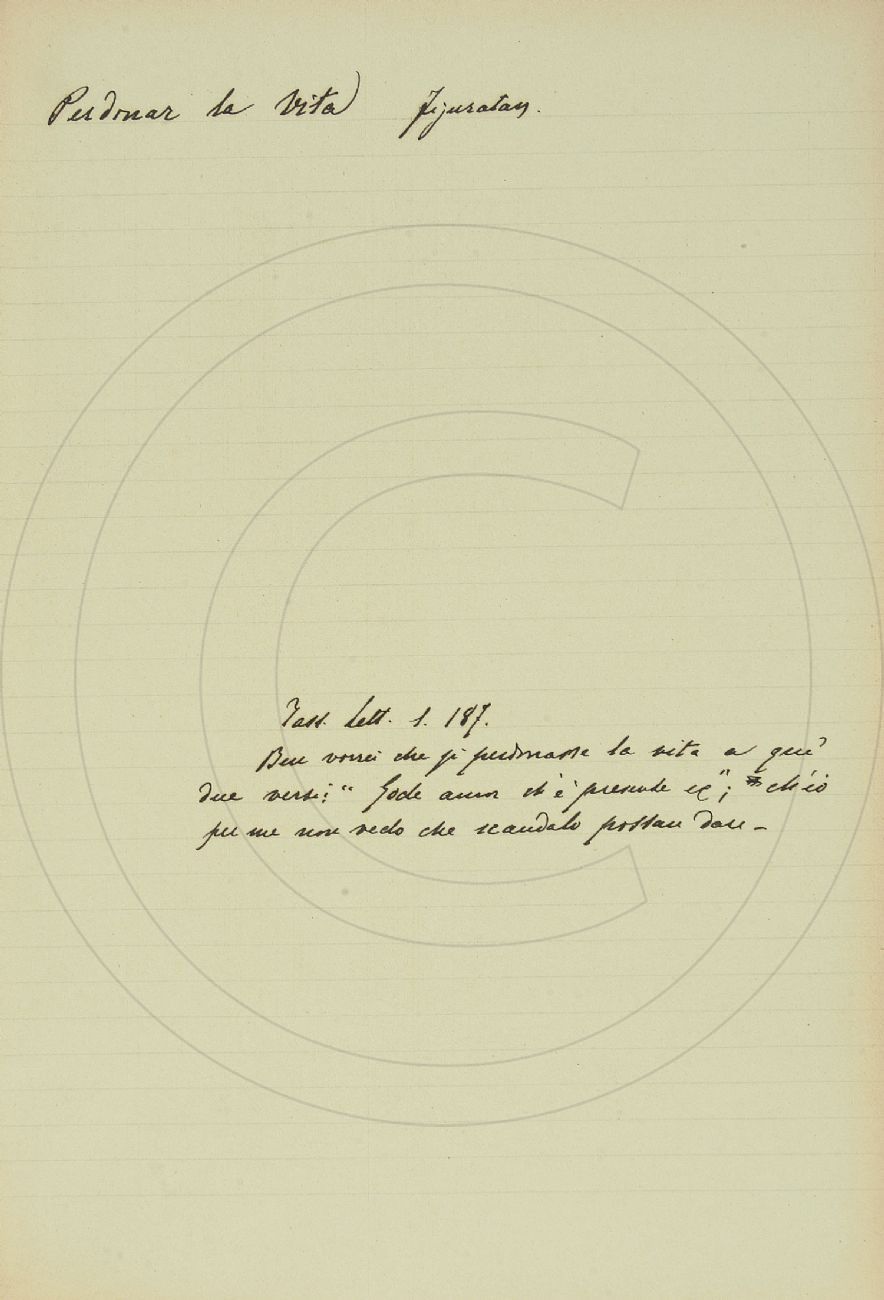 Perdonar la Vita) figuratam.
Tass. Lett. 1. 187.
Ben vorrei che si perdonasse la vita a que'
due versi: "Gode amor ch'è presente ec"; ch'io
per me non vedo che scandalo possan dare_